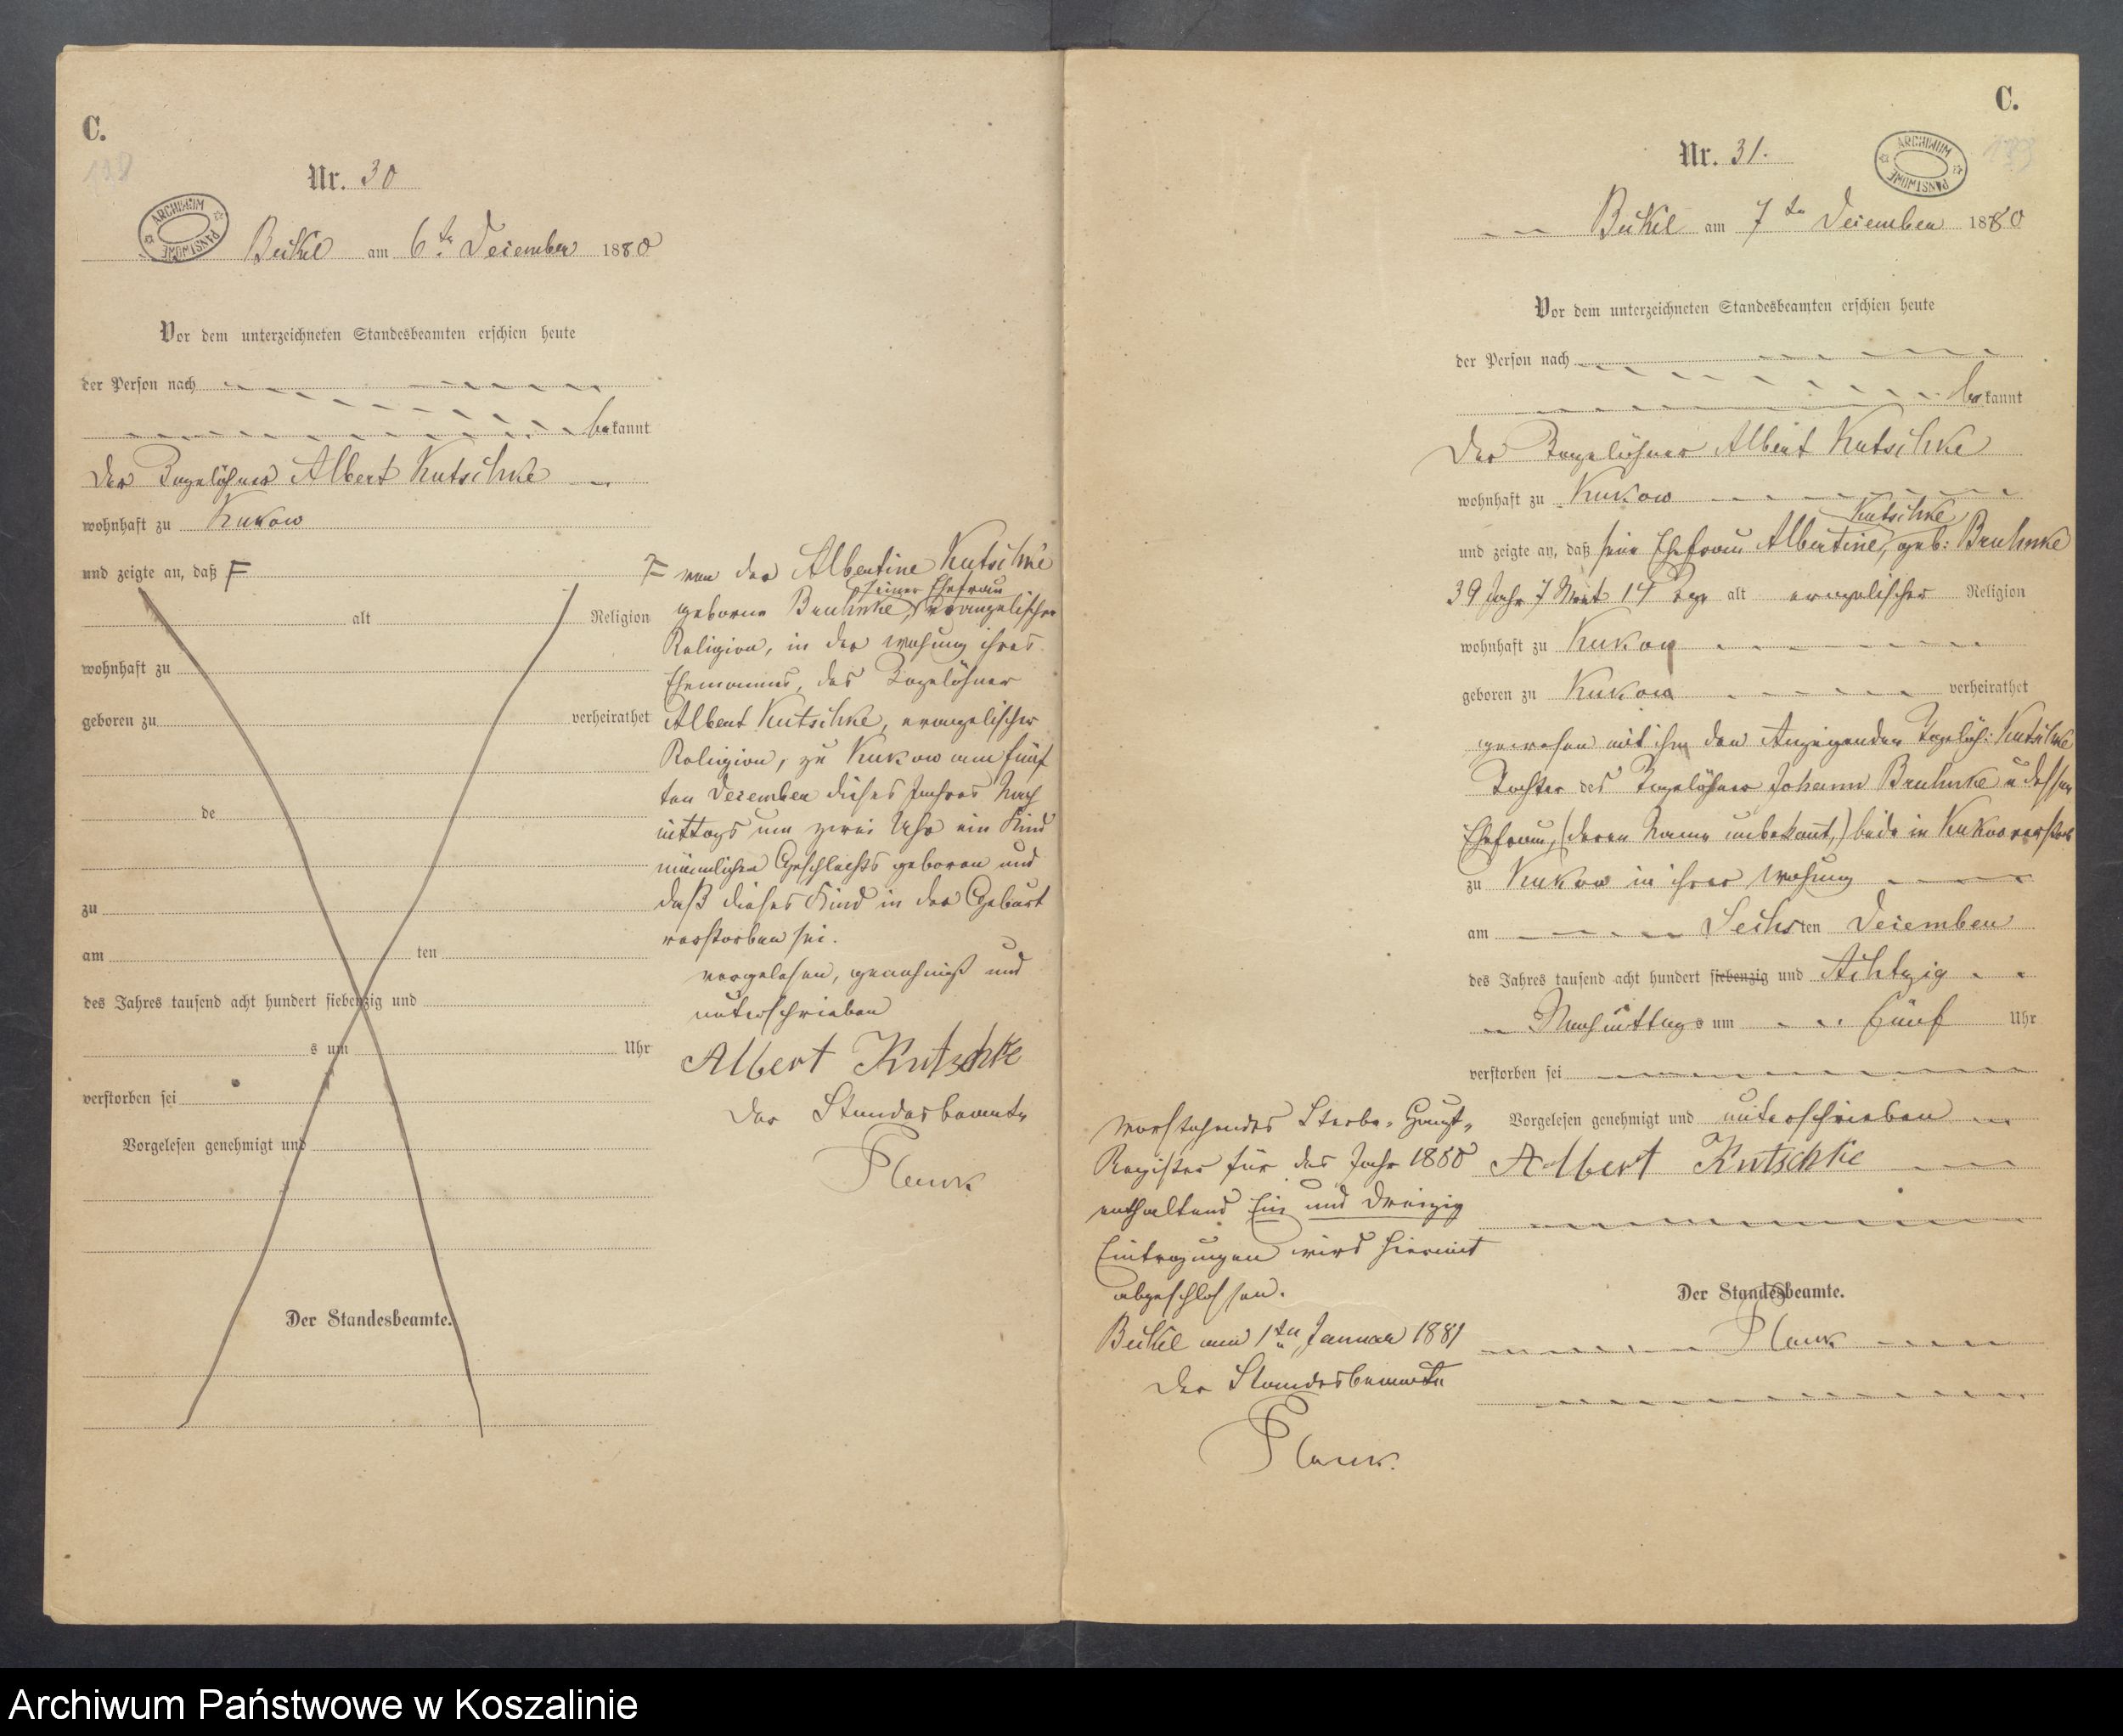 C.
Nr. 30
ARCHIWUM PAŃSTWOWE
Beikel am 6ten December 1880
Vor dem unterzeichneten Standesbeamten erschien heute
der Person nach
bekannt
der Tagelöhner Albert Kutschke
wohnhaft zu Kukow
und zeigte an, daß F
alt Religion
wohnhaft zu
geboren zu verheirathet
de
zu
am ten
des Jahres tausend acht hundert siebenzig und
s um Uhr
verstorben sei
Vorgelesen genehmigt und
Der Standesbeamte.
F von der Albertine Kutschke
geborne Bruhnke, seiner Ehefrau evangelischer
Religion, in der Wohnung ihres
Ehemannes, des Tagelöhner
Albert Kutschke, evangelischer
Religion, zu Kukow am fünf
ten December dieses Jahres Nach
mittags um zwei Uhr ein Kind
männlichen Geschlechts geboren und
daß dieses Kind in der Geburt
verstorben sei.
vorgelesen, genehmigt und
unterschrieben
Albert Kutschke
Der Standesbeamte
Plank
C.
Nr. 31.
ARCHIWUM PAŃSTWOWE
Beikel am 7ten December 1880
Vor dem unterzeichneten Standesbeamten erschien heute
der Person nach
bekannt
Der Tagelöhner Albert Kutschke
wohnhaft zu Kukow
und zeigte an, daß seine Ehefrau Albertine Kutschke, geb: Bruhnke
39 Jahr 7 Monat 14 Tage alt evangelischer Religion
wohnhaft zu Kukow
geboren zu Kukow verheirathet
gewesen mit ihm den Anzeigenden Tagelöh: Kutschke
Tochter des Tagelöhner Johann Bruhnke u dessen
Ehefrau, (deren Name unbekannt,) beide in Kukow verstorb
zu Kukow in ihrer Wohnung
am Sechsten December
des Jahres tausend acht hundert siebenzig und Achtzig
Nachmittags um Fünf Uhr
verstorben sei
Vorgelesen genehmigt und unterschrieben
Albert Kutschke
Der Standesbeamte.
Plank
Vorstehendes Sterbe-Haupt-
Register für das Jahr 1880
enthaltend Ein und dreizig
Eintragungen wird hiermit
abgeschlossen.
Beikel am 1ten Januar 1881
Der Standesbeamte
Plank.
Archiwum Państwowe w Koszalinie